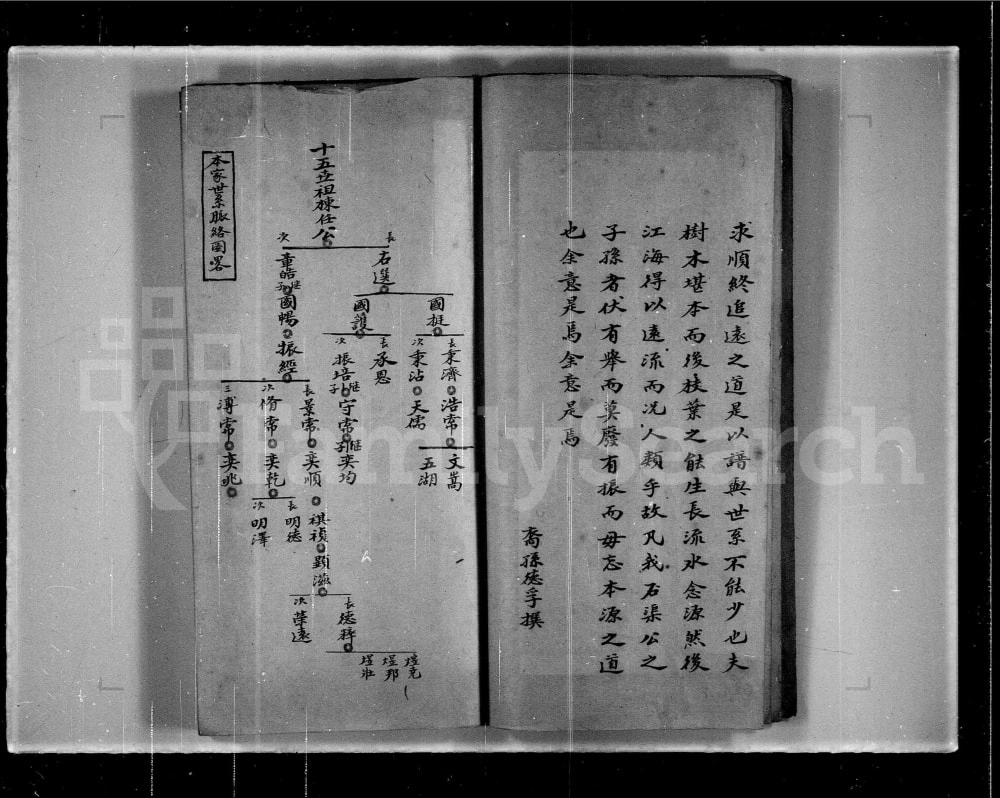 求順終追遠之道是以譜與世系不能少也夫
樹木堪本而後枝葉之能生長流水念源然後
江海得以遠流而況人類乎故凡我石渠公之
子孫者伏有舉而莫廢有振而毋忘本源之道
也余意是焉余意是焉
裔孫德孚撰
本家世系脈絡圖畧
十五立祖棟任公
長 右選
次 童皓 继子 國暢
振經
國挺
國護
長 秉濟 浩常
次 秉沾 天儒
長 承恩
次 振培 继子 守常 继子 奕均
文嵩
五湖
長 景常 奕順
次 脩常 奕乾
三 溥常 奕兆
長 明德
次 明澤
祺禎 顕滋
長 德釋
次 榮遠
煜克
煜邦
煜壯
FamilySearch